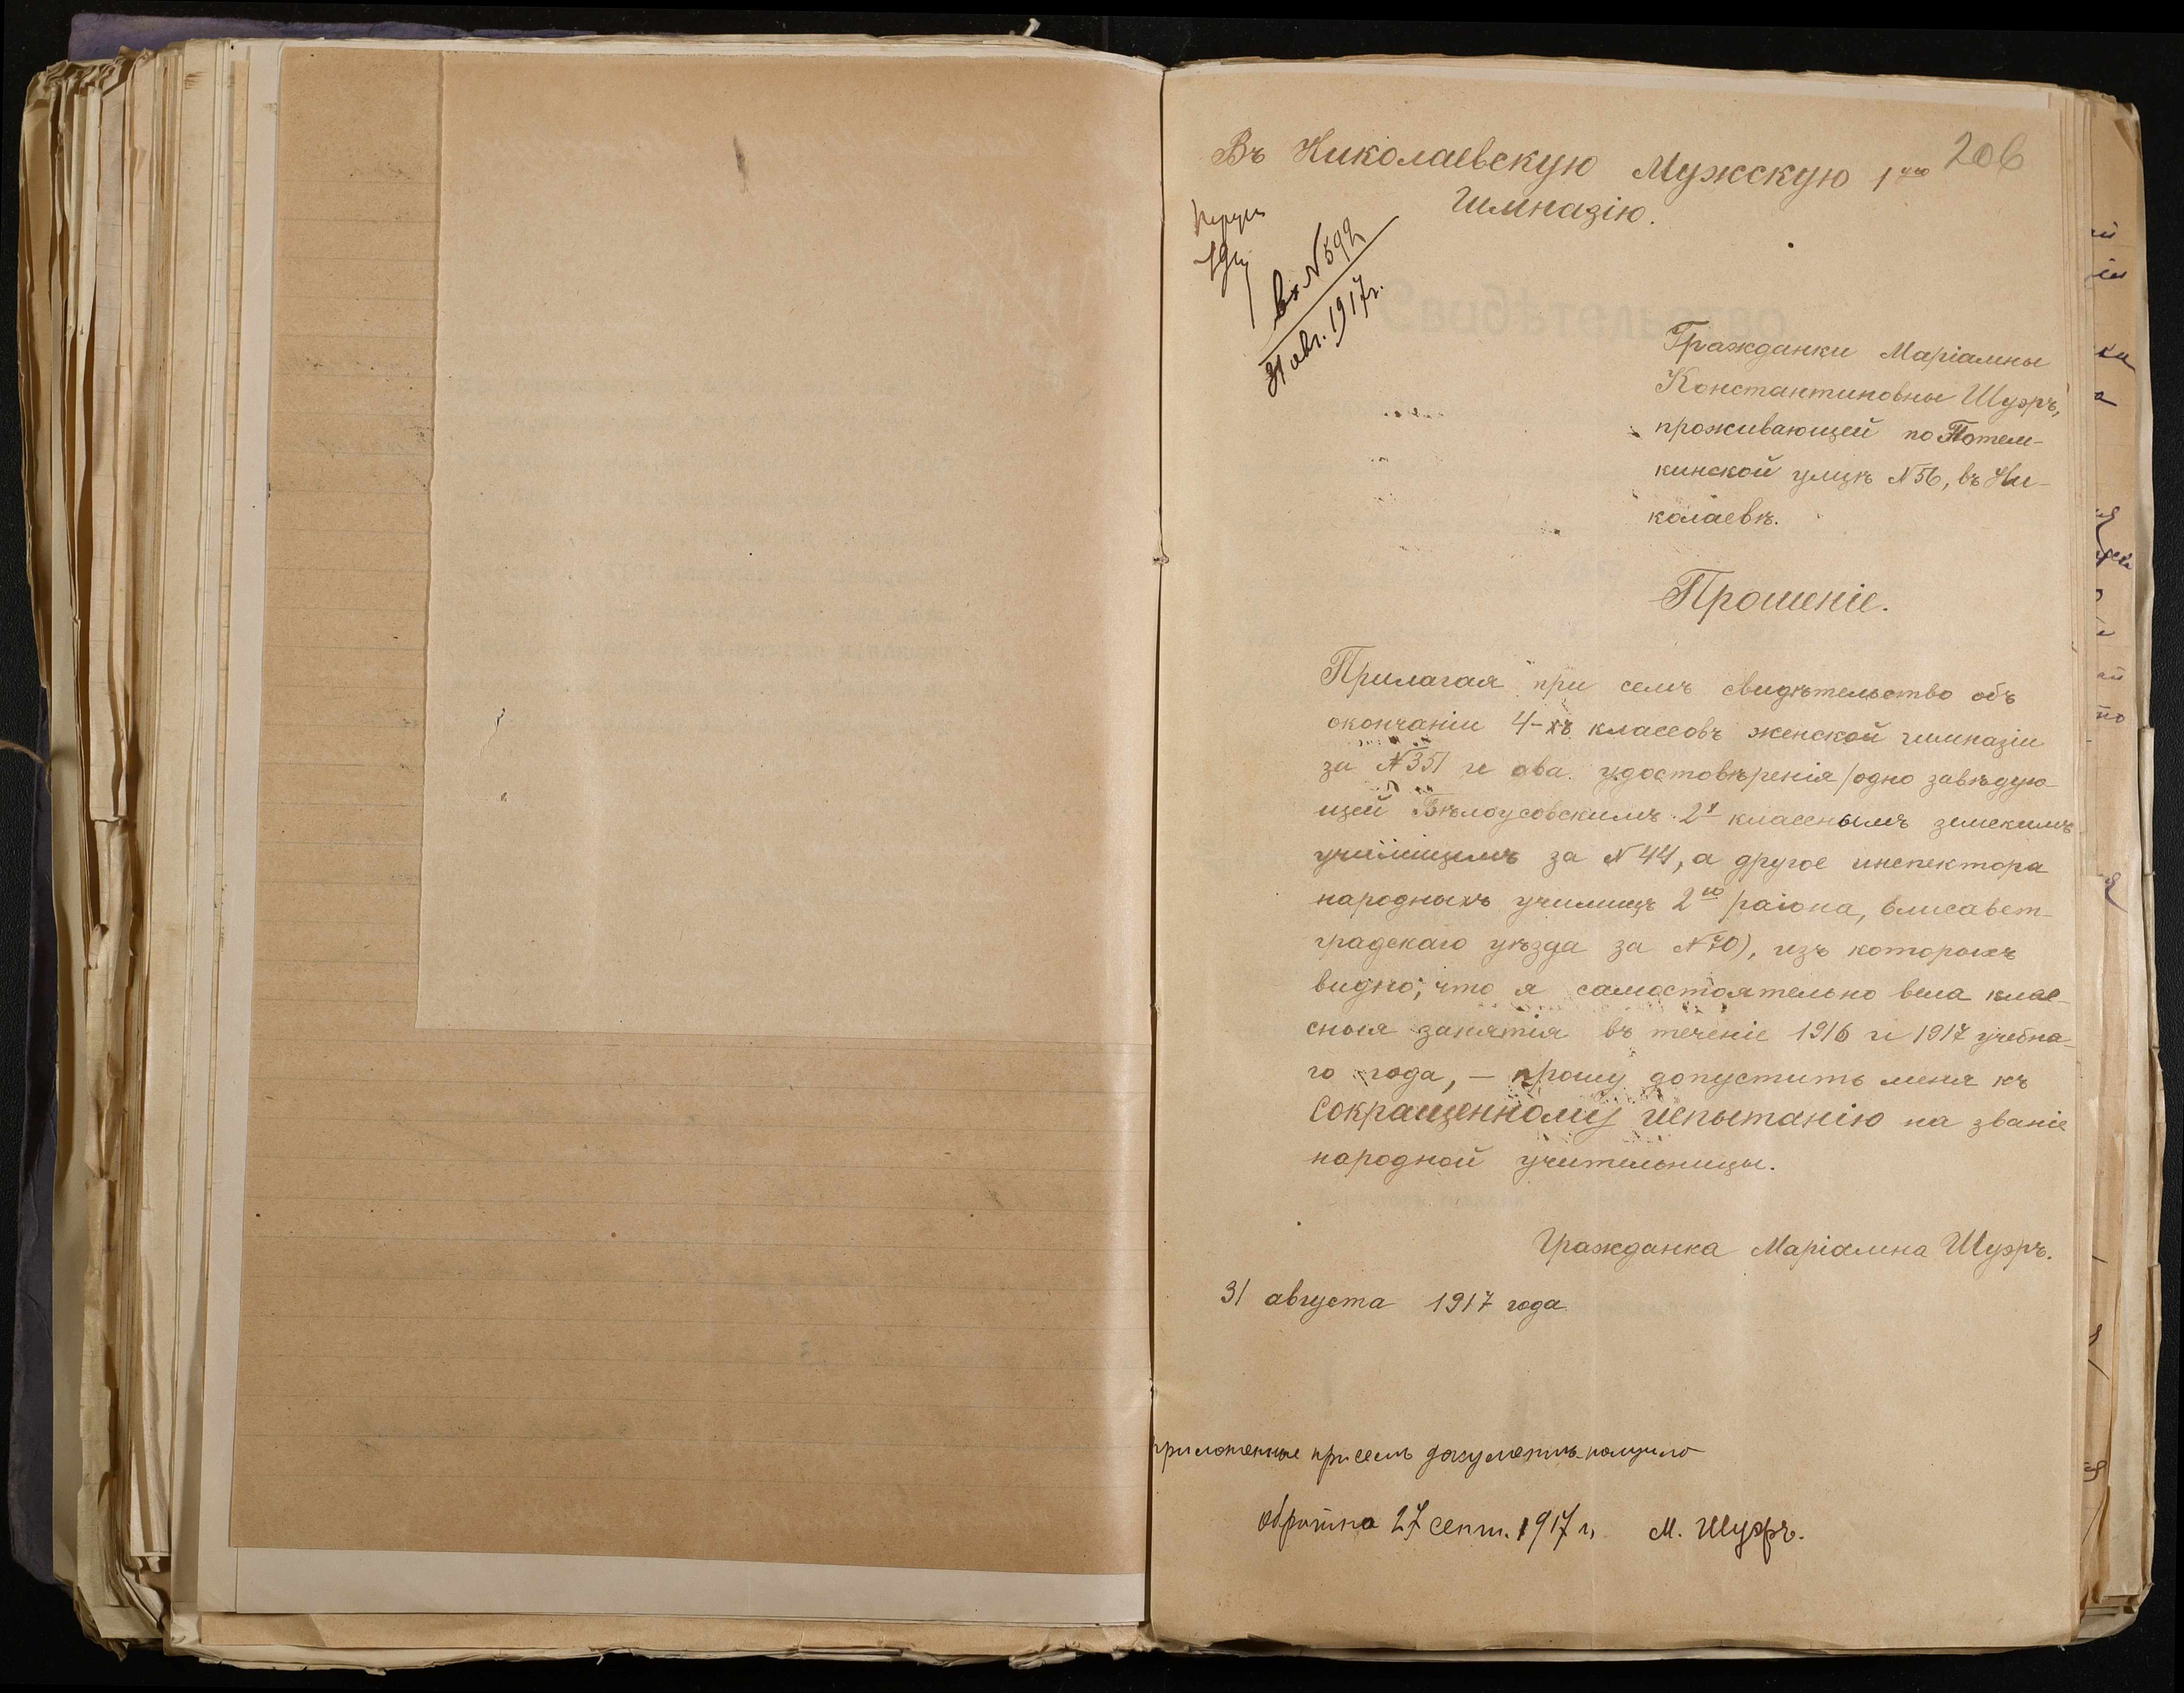 206
Въ Николаевскую Мужскую 1ую
Гимназію.
вх. N 592
31 авг. 1917г.
Гражданки Маріамны
Константиновны Шуэръ,
проживающей по Потем-
кинской улицѣ N 56, въ Ни-
колаевѣ.
Прошеніе.
Прилагая при семъ свидѣтельство объ
окончаніи 4-хъ классовъ женской гимназіи
за N 351 и два удостовѣренія /одно завѣдую-
щей Бѣлоусовскимъ 2х класснымъ земскимъ
училищемъ за N 44, а другое инспектора
народныхъ училищъ 2го раіона, Елисавет-
градскаго уѣзда за N 70), изъ которыхъ
видно, что я самостоятельно вела клас-
сныя занятія въ теченіе 1916 и 1917 учебна-
го года, – прошу допустить меня къ
сокращенному испытанію на званіе
народной учительницы.
Гражданка Маріамна Шуэръ.
31 августа 1917 года
приложенные при семъ документы получила
обратно 27 сент. 1917 г. М. Шуэръ.